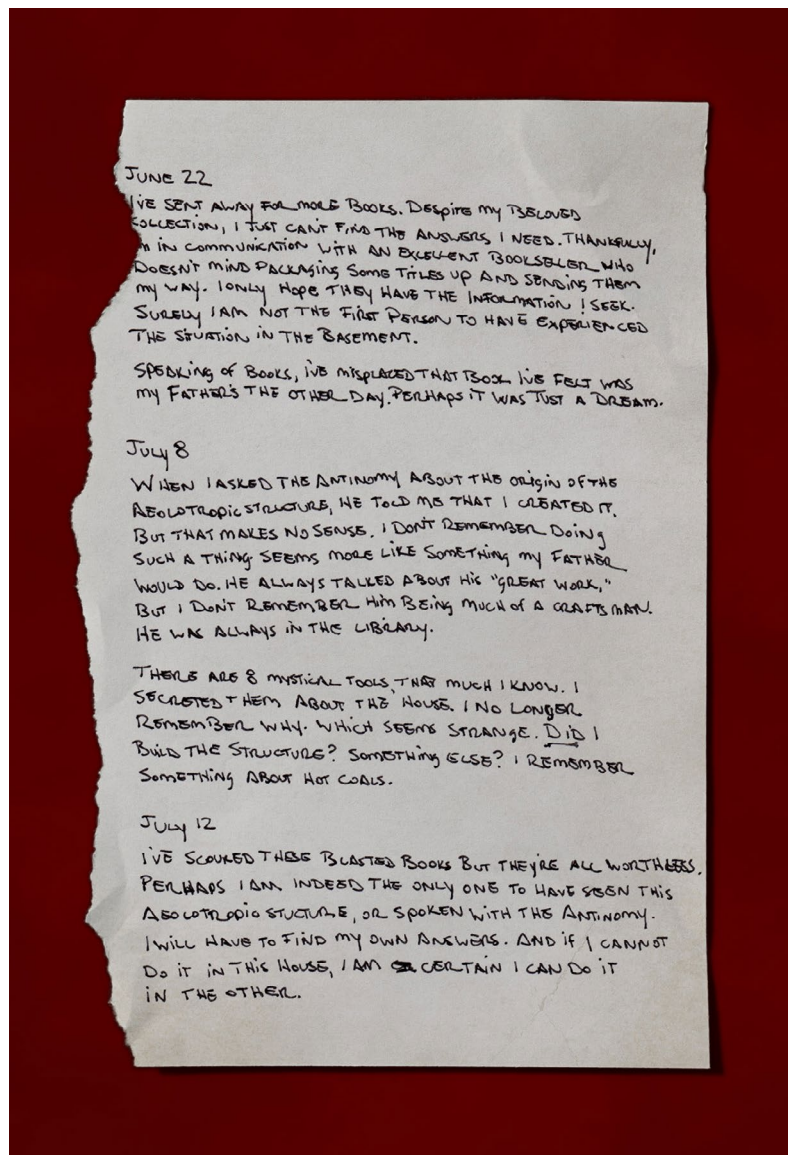 JUNE 22
I'VE SENT AWAY FOR MORE BOOKS. DESPITE MY BELOVED
COLLECTION, I JUST CAN'T FIND THE ANSWERS I NEED. THANKFULLY,
IN COMMUNICATION WITH AN EXCELLENT BOOKSELLER WHO
DOESN'T MIND PACKAGING SOME TITLES UP AND SENDING THEM
MY WAY. I ONLY HOPE THEY HAVE THE INFORMATION I SEEK.
SURELY I AM NOT THE FIRST PERSON TO HAVE EXPERIENCED
THE SITUATION IN THE BASEMENT.
SPEAKING OF BOOKS, I'VE MISPLACED THAT BOOK I'VE FELT WAS
MY FATHER'S THE OTHER DAY. PERHAPS IT WAS JUST A DREAM.
JULY 8
WHEN I ASKED THE ANTINOMY ABOUT THE ORIGIN OF THE
AEOLOTROPIC STRUCTURE, HE TOLD ME THAT I CREATED IT.
BUT THAT MAKES NO SENSE. I DON'T REMEMBER DOING
SUCH A THING. SEEMS MORE LIKE SOMETHING MY FATHER
WOULD DO. HE ALWAYS TALKED ABOUT HIS "GREAT WORK,"
BUT I DON'T REMEMBER HIM BEING MUCH OF A CRAFTSMAN.
HE WAS ALWAYS IN THE LIBRARY.
THERE ARE 8 MYSTICAL TOOLS, THAT MUCH I KNOW. I
SECRETED THEM ABOUT THE HOUSE. I NO LONGER
REMEMBER WHY. WHICH SEEMS STRANGE. DID I
BUILD THE STRUCTURE? SOMETHING ELSE? I REMEMBER
SOMETHING ABOUT HOT COALS.
JULY 12
I'VE SCOURED THESE BLASTED BOOKS BUT THEY'RE ALL WORTHLESS.
PERHAPS I AM INDEED THE ONLY ONE TO HAVE SEEN THIS
AEOLOTROPIC STUCTURE, OR SPOKEN WITH THE ANTINOMY.
I WILL HAVE TO FIND MY OWN ANSWERS. AND IF I CANNOT
DO IT IN THIS HOUSE, I AM CERTAIN I CAN DO IT
IN THE OTHER.